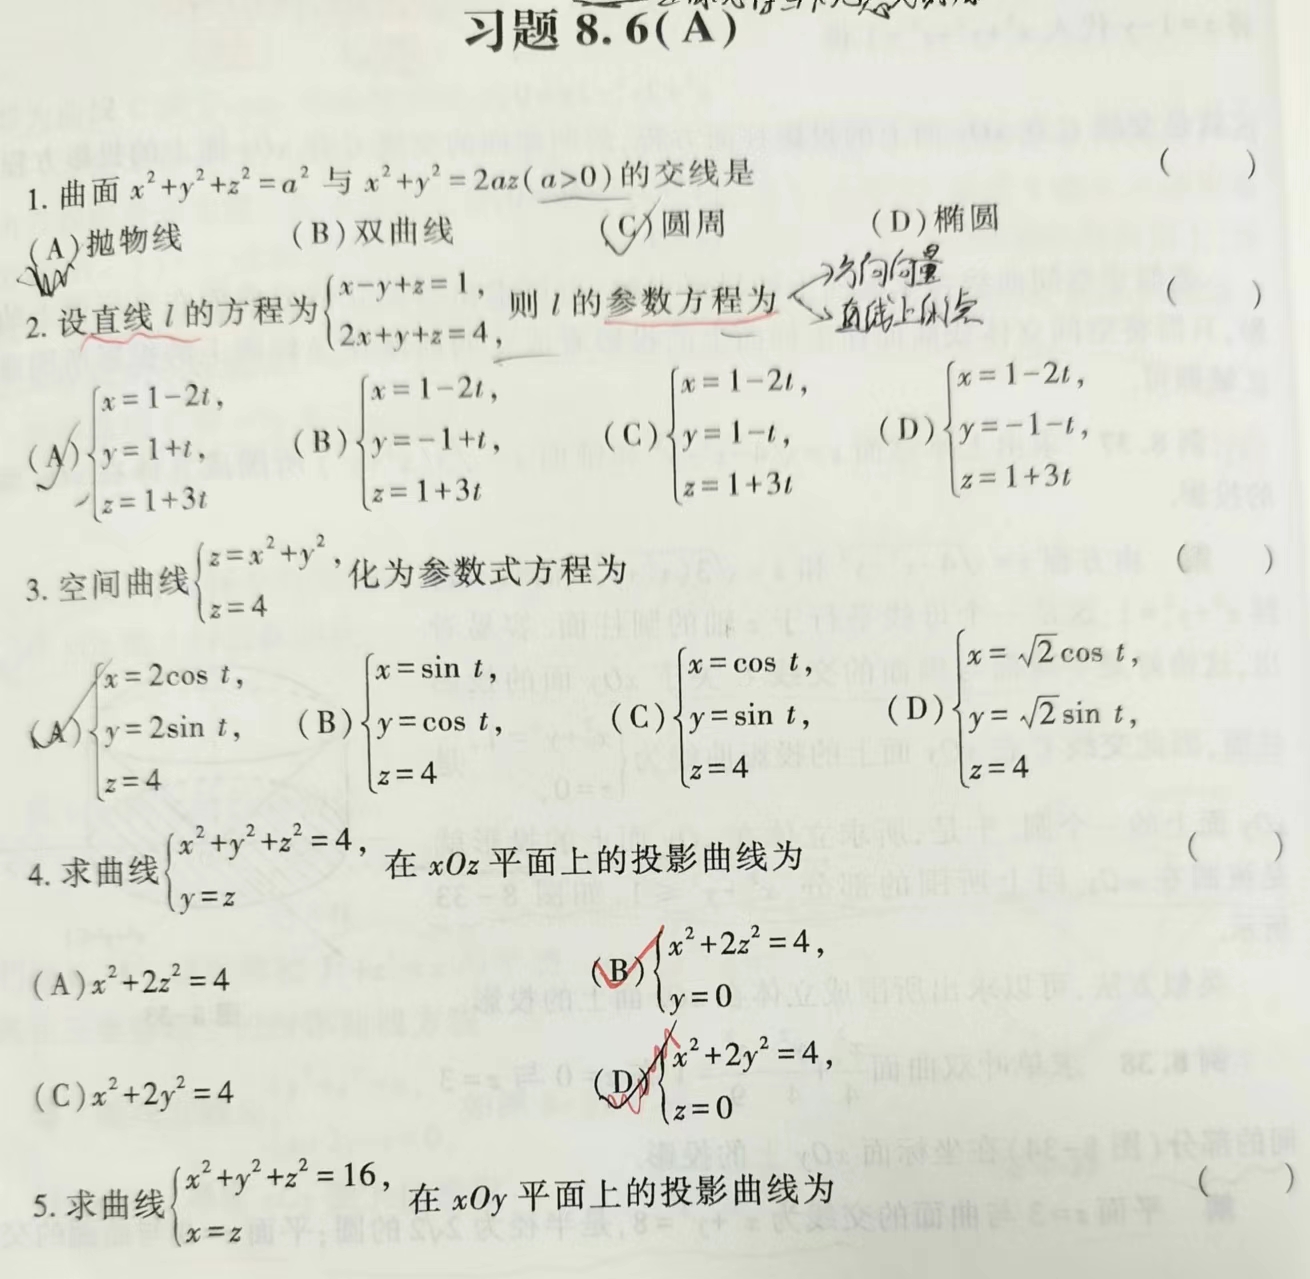 习题 8.6(A)
1. 曲面 x²+y²+z²=a² 与 x²+y²=2az(a>0)的交线是 ( )
(A)抛物线 (B)双曲线 (C)圆周 (D)椭圆
方向向量
2. 设直线 l 的方程为{x-y+z=1, 2x+y+z=4, 则 l 的参数方程为 ( )
直线上的点
(A){x=1-2t, y=1+t, z=1+3t (B){x=1-2t, y=-1+t, z=1+3t (C){x=1-2t, y=1-t, z=1+3t (D){x=1-2t, y=-1-t, z=1+3t
3. 空间曲线{z=x²+y², z=4 化为参数式方程为 ( )
(A){x=2cos t, y=2sin t, z=4 (B){x=sin t, y=cos t, z=4 (C){x=cos t, y=sin t, z=4 (D){x=√2cos t, y=√2sin t, z=4
4. 求曲线{x²+y²+z²=4, y=z 在 xOz 平面上的投影曲线为 ( )
(A)x²+2z²=4 (B){x²+2z²=4, y=0
(C)x²+2y²=4 (D){x²+2y²=4, z=0
5. 求曲线{x²+y²+z²=16, x=z 在 xOy 平面上的投影曲线为 ( )